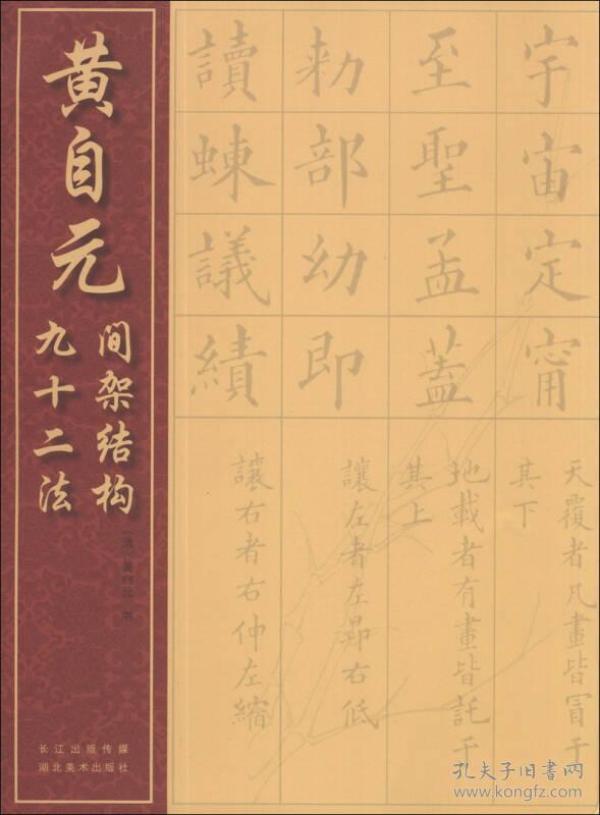 黄自元
间架结构
九十二法
长江出版传媒
湖北美术出版社
宇宙定甯
天覆者凡畫皆冒于
其下
至聖孟蓋
地載者有畫皆託于
其上
勑部幼即
讓左者左昂右低
讀蝀議績
讓右者右伸左縮
孔夫子旧书网
www.kongfz.com